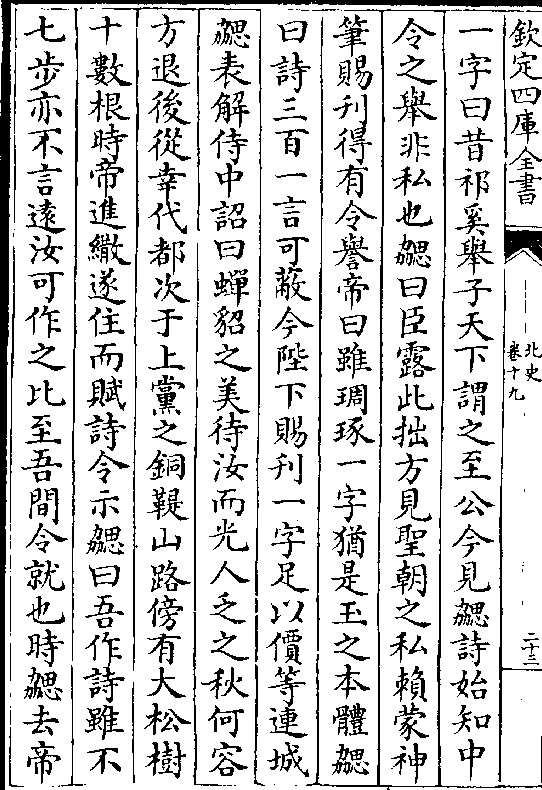 欽定四庫全書
北史
卷十九
二十三
一字曰昔祁奚舉子天下謂之至公今見勰詩始知中
令之舉非私也勰曰臣露此拙方見聖朝之私賴蒙神
筆賜刋得有令譽帝曰雖琱琢一字猶是玉之本體勰
曰詩三百一言可蔽今陛下賜刋一字足以價等連城
勰表解侍中詔曰蟬貂之美待汝而光人乏之秋何容
方退後從幸代都次于上黨之銅鞮山路傍有大松樹
十數根時帝進繖遂住而賦詩令示勰曰吾作詩雖不
七步亦不言遠汝可作之比至吾間令就也時勰去帝